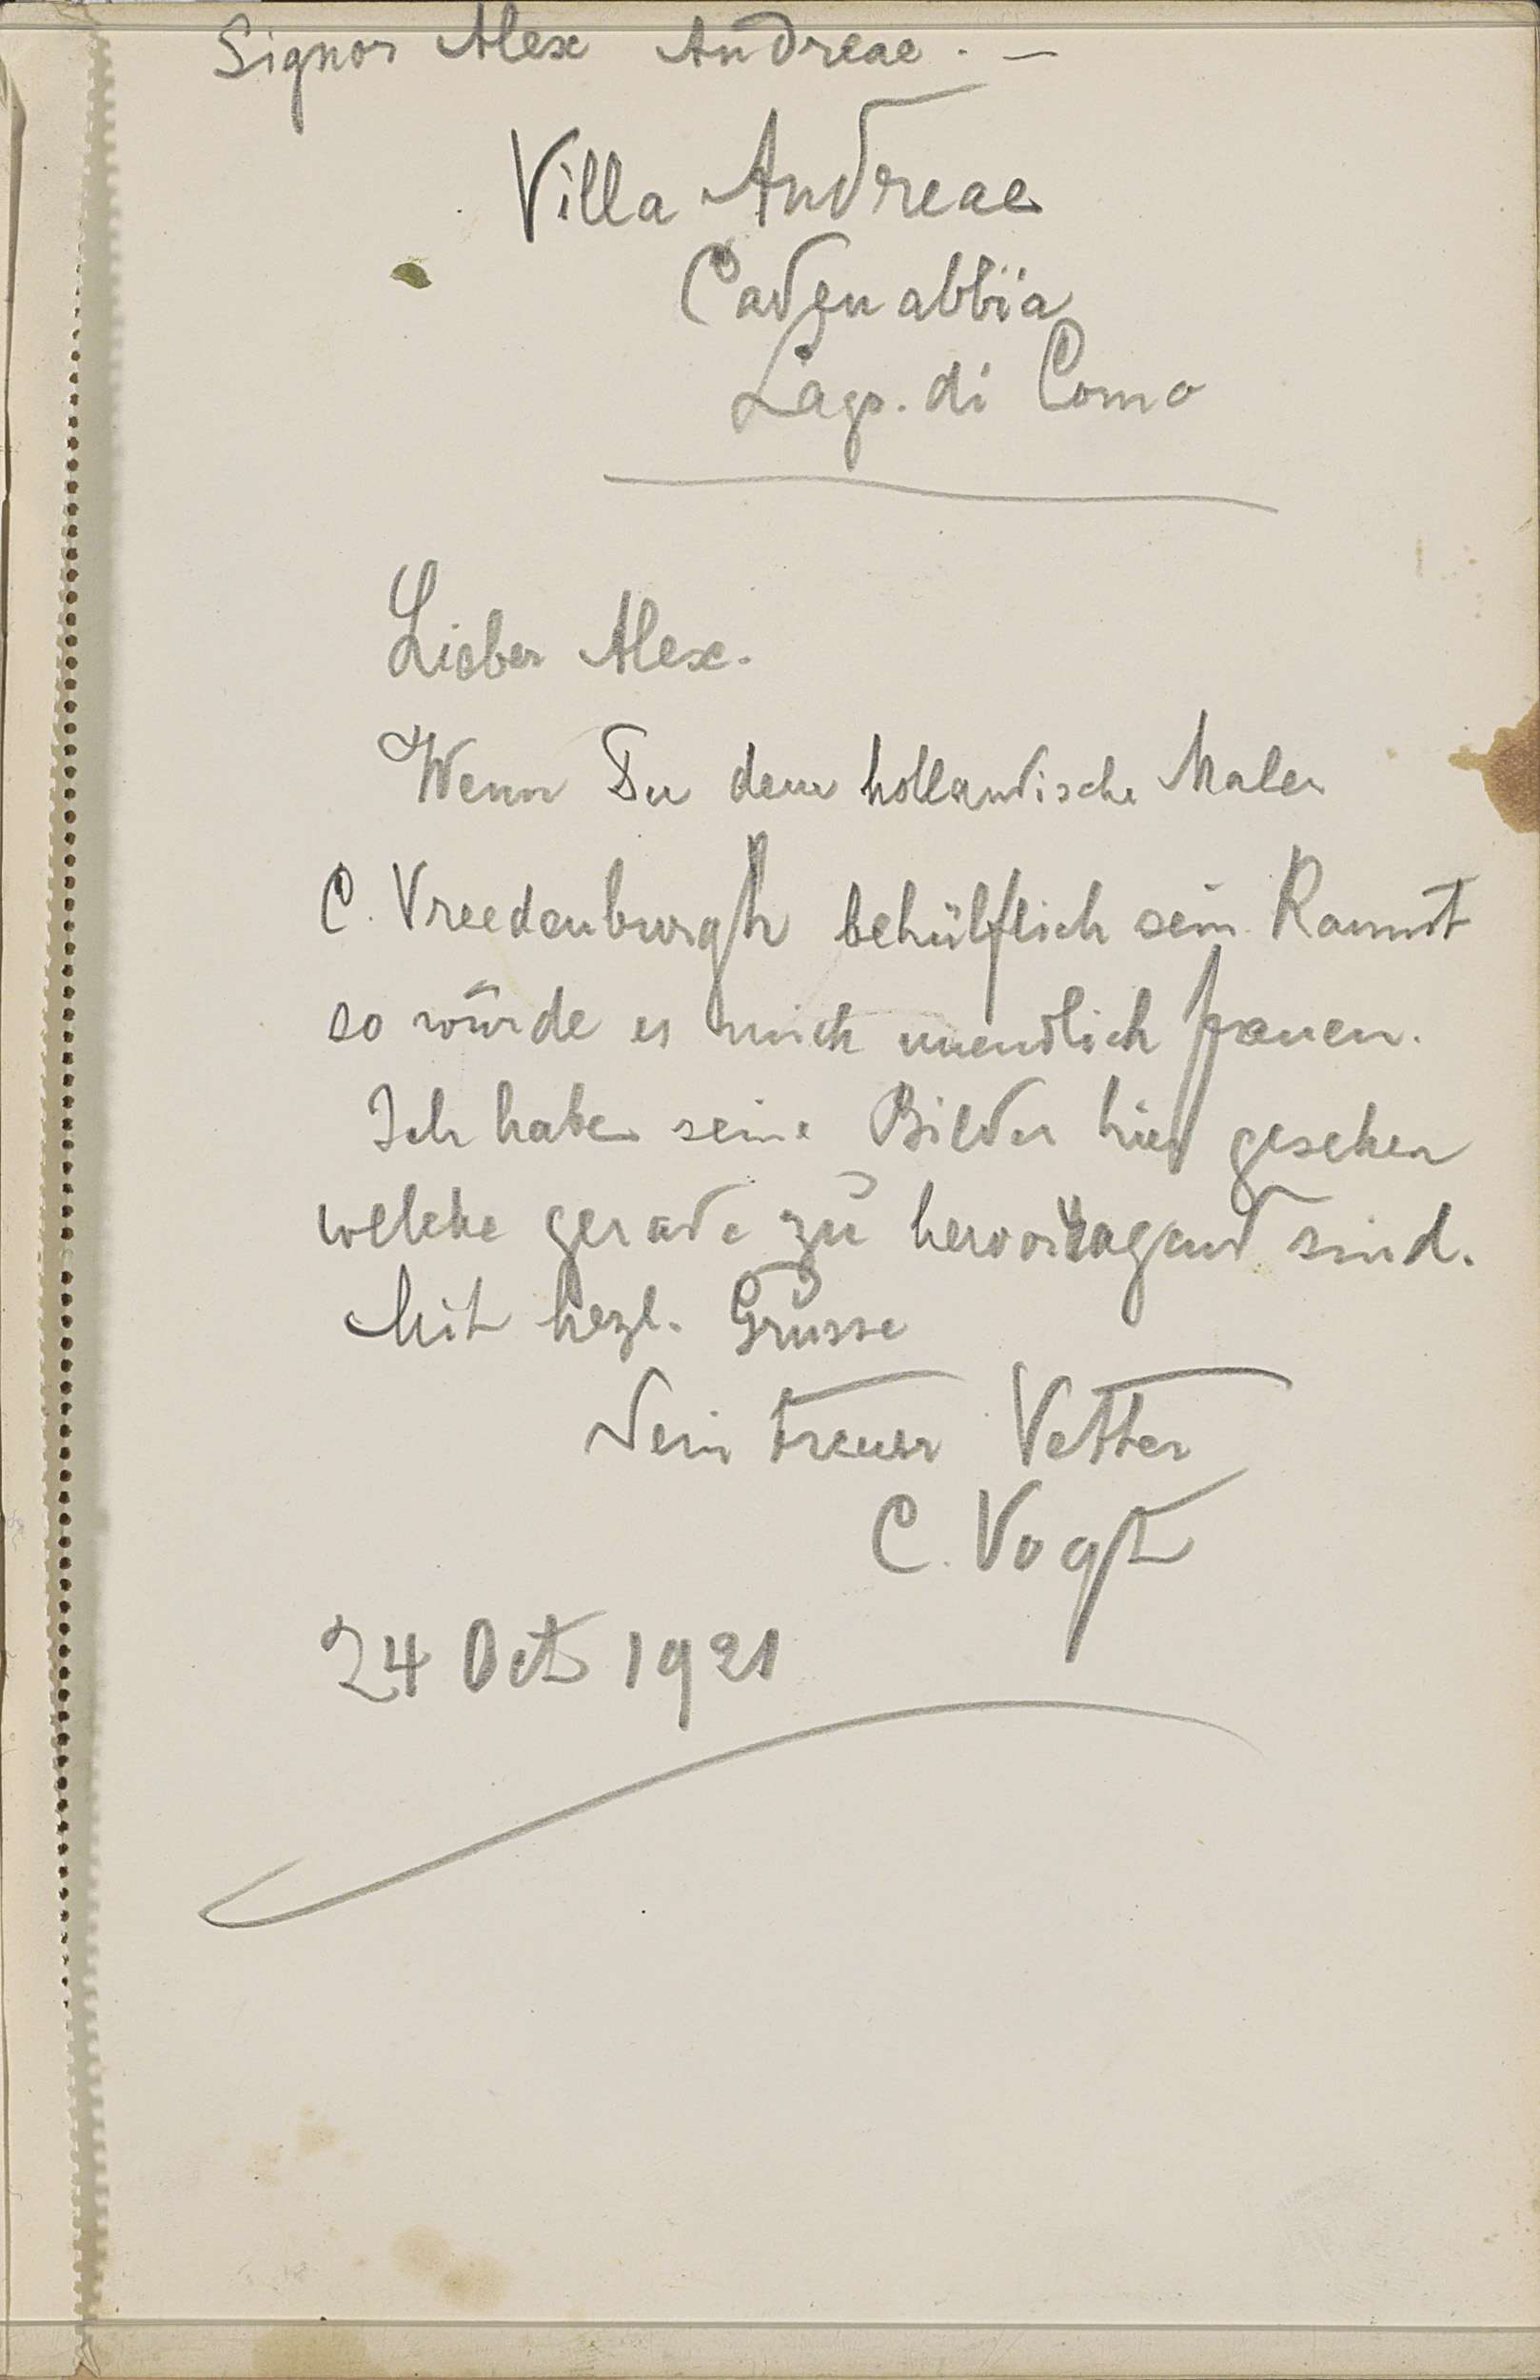 Signor Alex Andreae. —
Villa Andreae
Cadenabbïa
Lago. di Como
Lieber Alex.
Wenn Du dem hollandische Maler
C. Vreedenburgh behülflich sein Kannst
so würde es mich unendlich freuen.
Ich habe seine Bilder hier gesehen
welche gerade zu hervorragend sind.
Mit hezl. Grüsse
Dein treuer Vetter
C. Vogt
24 Oct 1921